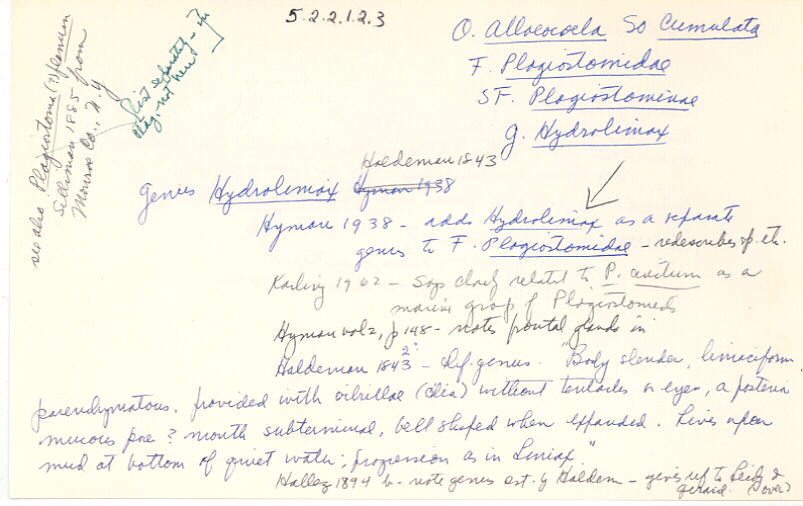 5.2.2.1.2.3
O. Alloeocoela So Cumulata
F. Plagiostomidae
SF. Plagiostominae
g. Hydrolimax
see also Plagiostoma (?) planum
Silliman 1885 from
Monroe Co., N.Y
list separately - in
not here
Haldeman 1843
genus Hydrolimax Hyman 1938
Hyman 1938 - adds Hydrolimax as a separate
genus to F. Plagiostomidae - redescribes sp. etc.
Karling 1962 - Says closely related to P. as a
marine group of Plagiostomids
Hyman vol 2, p 148 - notes frontal glands in
Haldeman 1843 2: - def. genus. "Body slender, limaciform
parenchymatous. provided with vibrillae (cilia) without tentacles or eyes, a posterior
mucous pore? mouth subterminal, bell shaped when expanded. Lives upon
mud at bottom of quiet water; progression as in Limax"
Hallez 1894 b - note genus est. by Haldem - gives ref to Leidy &
Girard. (over)